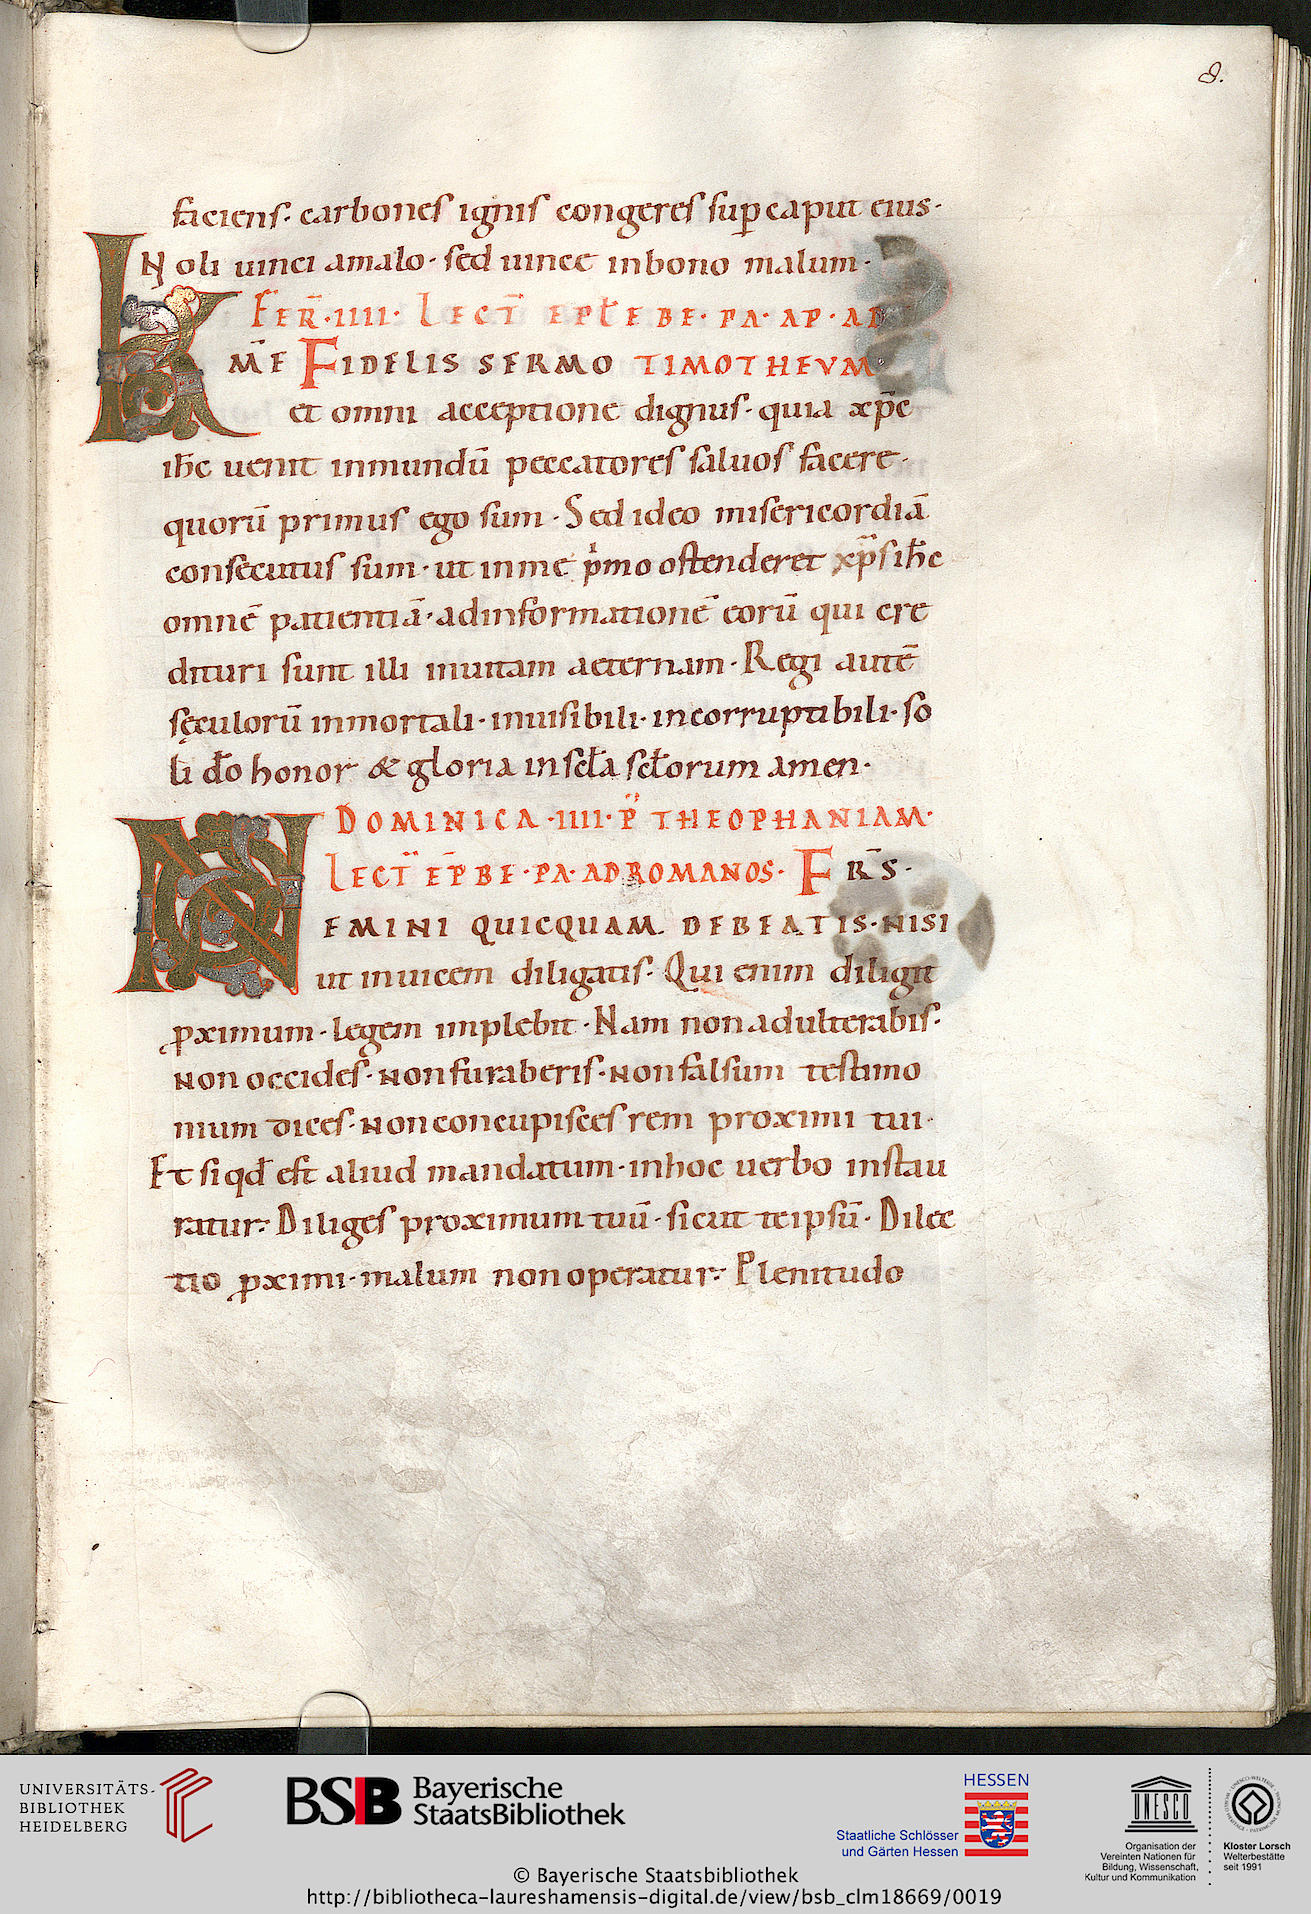 8.
faciens· carbones ignis congeres sup̲ caput eius·
Noli uinci amalo· sed uince inbono malum·
FER̄·IIII· LECT̄ EPŁE BE·PA·AP·AD
K M̄E FIDELIS SERMO TIMOTHEVM·
et omni acceptione dignus· quia xp̄c
ih̄c uenit inmundū peccatores saluos facere·
quorū primus ego sum· Sed ideo misericordiā
consecutus sum· ut inme pͥmo ostenderet xp̄s ih̄c
omnē patientiā· adinformationē eorū qui cre
dituri sunt illi inuitam aeternam· Regi autē
sęculorū inmortali· inuisibili· incorruptibili· so
li d̄o honor & gloria insc̄ła sc̄łorum amen·
DOMINICA·IIII·P̄ THEOPHANIAM·
LECT̄ EP̄ BE·PA·ADROMANOS· FR̄S·
NEMINI QUICQUAM DEBEATIS·NISI
ut inuicem diligatis· Qui enim diligit
ꝓximum· legem implebit· Nam non adulterabis·
non occides· non furaberis· non falsum testimo
nium dices· non concupisces rem proximi tui·
Et si qd̄ est aliud mandatum· inhoc uerbo instau
ratur· Diliges proximum tuū· sicut teipsū· Dilec
tio ꝓximi· malum non operatur· Plenitudo
UNIVERSITÄTS-
BIBLIOTHEK
HEIDELBERG
BSB Bayerische
StaatsBibliothek
HESSEN
Staatliche Schlösser
und Gärten Hessen
UNESCO
Organisation der
Vereinten Nationen für
Bildung, Wissenschaft,
Kultur und Kommunikation
Kloster Lorsch
Welterbestätte
seit 1991
© Bayerische Staatsbibliothek
http://bibliotheca-laureshamensis-digital.de/view/bsb_clm18669/0019